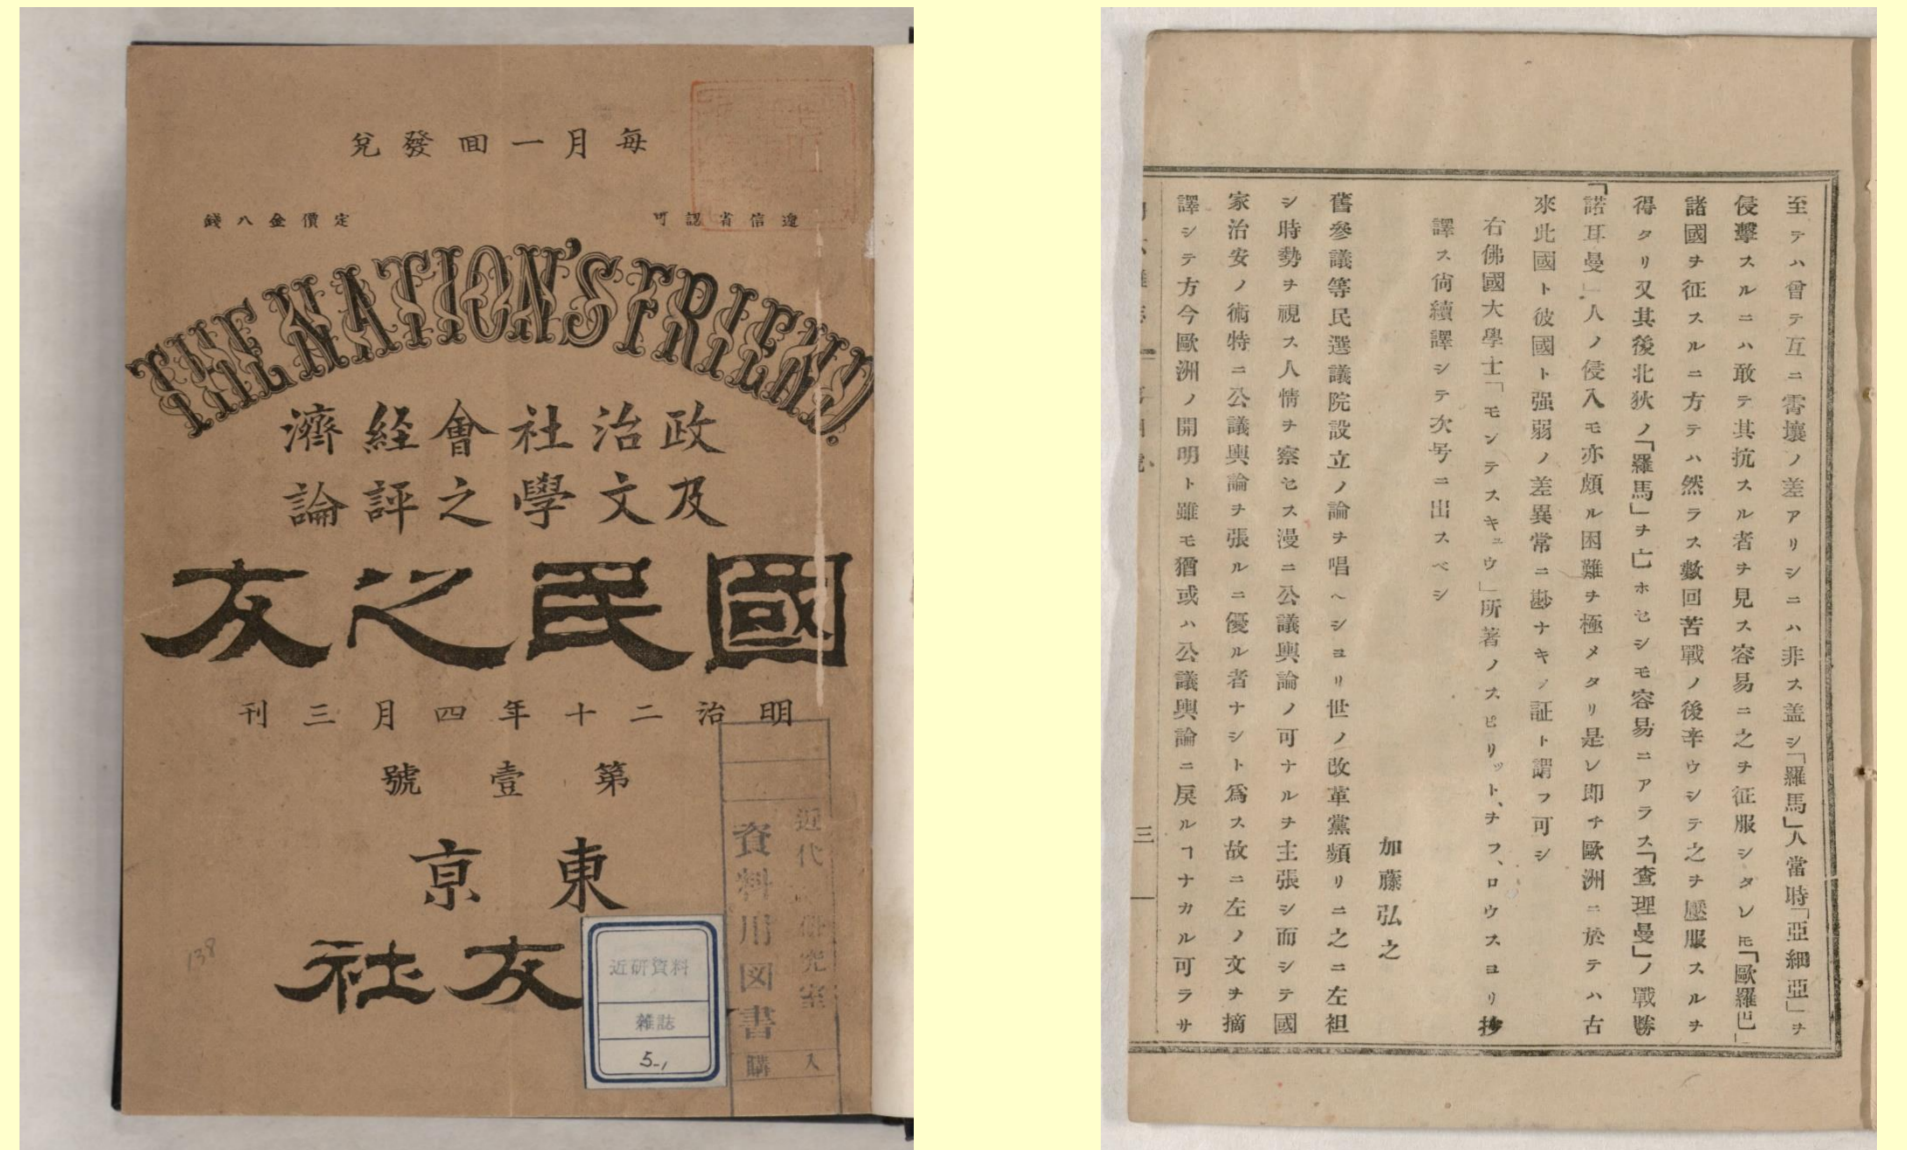 毎月一回發兌
遞信省認可
定價金八錢
THE NATION'S FRIEND.
政治社會経濟
及文學之評論
國民之友
明治二十年四月三刊
第壹號
東京
友社
近研資料
雜誌
5-1
近代 研究室
資料用図書
購入
138
至テハ曾テ互ニ霄壤ノ差アリシニハ非ス盖シ「羅馬」人當時「亞細亞」ヲ
侵擊スルニハ敢テ其抗スル者ヲ見ス容易ニ之ヲ征服シタレ𪜈「歐羅巴」
諸國ヲ征スルニ方テハ然ラス數回苦戰ノ後辛ウシテ之ヲ壓服スルヲ
得タリ又其後北狄ノ「羅馬」ヲ亡ホセシモ容易ニアラス「査理曼」ノ戰勝
「諾耳曼」人ノ侵入モ亦頗ル困難ヲ極メタリ是レ即チ歐洲ニ於テハ古
來此國ト彼國ト强弱ノ差異常ニ尠ナキノ証ト謂フ可シ
右佛國大學士「モンテスキュウ」所著ノスピリット、ヲフ、ロウスヨリ抄
譯ス尙續譯シテ次号ニ出スベシ
加藤弘之
舊參議等民選議院設立ノ論ヲ唱ヘシヨリ世ノ改革黨頻リニ之ニ左袒
シ時勢ヲ視ス人情ヲ察セス漫ニ公議輿論ノ可ナルヲ主張シ而シテ國
家治安ノ術特ニ公議輿論ヲ張ルニ優ル者ナシト爲ス故ニ左ノ文ヲ摘
譯シテ方今歐洲ノ開明ト雖モ猶或ハ公議輿論ニ戾ルヿナカル可ラサ
三